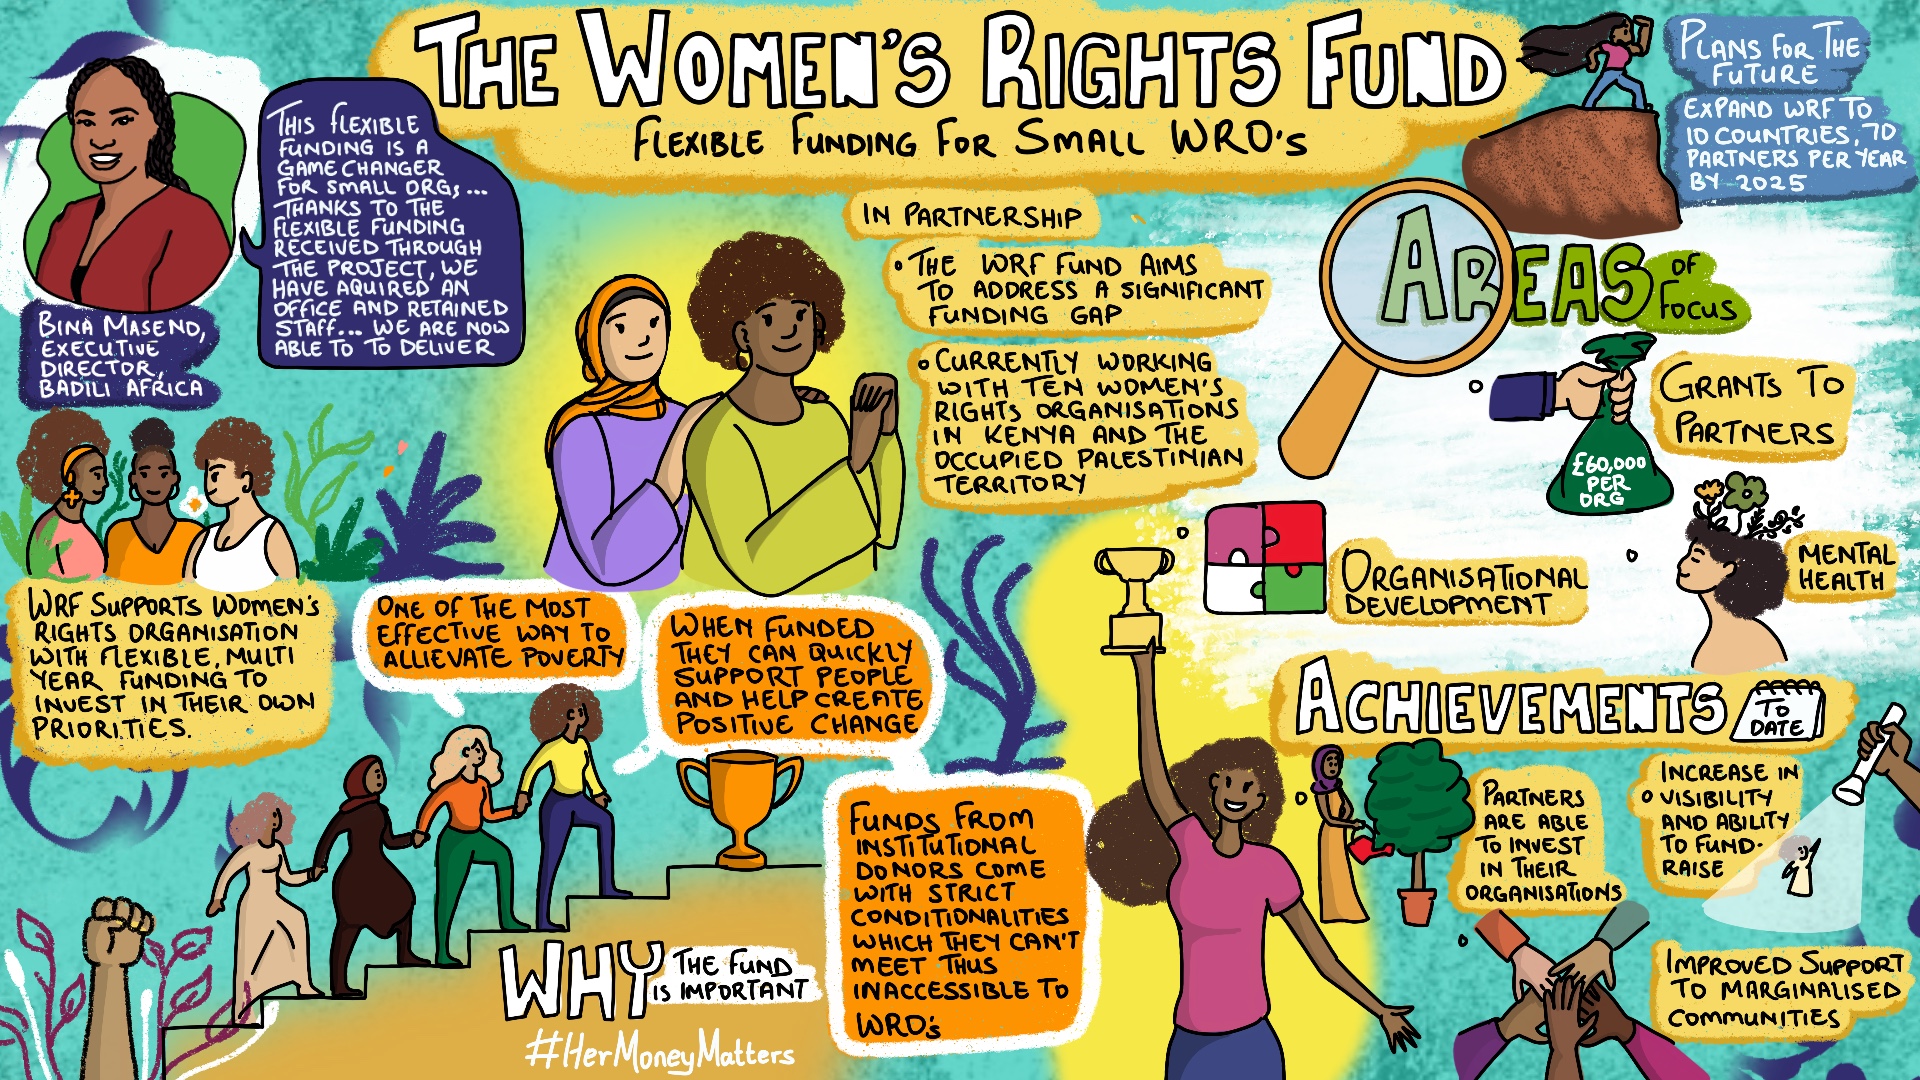 THE WOMEN'S RIGHTS FUND
FLEXIBLE FUNDING FOR SMALL WRO's
THIS FLEXIBLE
FUNDING IS A
GAME CHANGER
FOR SMALL ORG; ...
THANKS TO THE
FLEXIBLE FUNDING
RECEIVED THROUGH
THE PROJECT, WE
HAVE AQUIRED AN
OFFICE AND RETAINED
STAFF... WE ARE NOW
ABLE TO TO DELIVER
BINA MASENO,
EXECUTIVE
DIRECTOR,
BADILI AFRICA
WRF SUPPORTS WOMEN'S
RIGHTS ORGANISATION
WITH FLEXIBLE, MULTI
YEAR FUNDING TO
INVEST IN THEIR OWN
PRIORITIES.
IN PARTNERSHIP
• THE WRF FUND AIMS
TO ADDRESS A SIGNIFICANT
FUNDING GAP
• CURRENTLY WORKING
WITH TEN WOMEN'S
RIGHTS ORGANISATIONS
IN KENYA AND THE
OCCUPIED PALESTINIAN
TERRITORY
PLANS FOR THE
FUTURE
EXPAND WRF TO
10 COUNTRIES, 70
PARTNERS PER YEAR
BY 2025
AREAS OF
FOCUS
GRANTS TO
PARTNERS
£60,000
PER
ORG
ORGANISATIONAL
DEVELOPMENT
MENTAL
HEALTH
ONE OF THE MOST
EFFECTIVE WAY TO
ALLIEVATE POVERTY
WHEN FUNDED
THEY CAN QUICKLY
SUPPORT PEOPLE
AND HELP CREATE
POSITIVE CHANGE
FUNDS FROM
INSTITUTIONAL
DONORS COME
WITH STRICT
CONDITIONALITIES
WHICH THEY CAN'T
MEET THUS
INACCESSIBLE TO
WRO's
WHY THE FUND
IS IMPORTANT
#HerMoneyMatters
ACHIEVEMENTS TO
DATE
PARTNERS
ARE ABLE
TO INVEST
IN THEIR
ORGANISATIONS
INCREASE IN
VISIBILITY
AND ABILITY
TO FUND-
RAISE
IMPROVED SUPPORT
TO MARGINALISED
COMMUNITIES